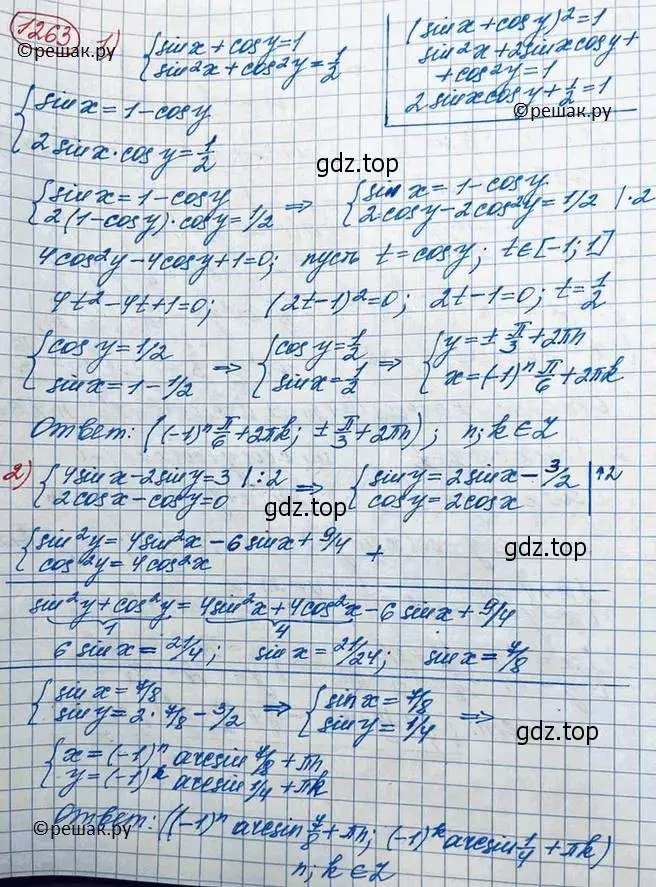 1263
©решак.ру
1) {sinx + cosy = 1
sin²x + cos²y = 1/2
(sinx + cosy)² = 1
sin²x + 2sinxcosy +
+ cos²y = 1
2sinxcosy + 1/2 = 1
©решак.ру
{sinx = 1 - cosy
2sinx·cosy = 1/2
gdz.top
{sinx = 1 - cosy
2(1-cosy)·cosy = 1/2 ⇒ {sinx = 1 - cosy
2cosy - 2cos²y = 1/2 |·2
4cos²y - 4cosy + 1 = 0; пусть t = cosy; t∈[-1; 1]
4t² - 4t + 1 = 0; (2t-1)² = 0; 2t - 1 = 0; t = 1/2
{cosy = 1/2
sinx = 1 - 1/2 ⇒ {cosy = 1/2
sinx = 1/2 ⇒ {y = ± π/3 + 2πn
x = (-1)ⁿ π/6 + 2πk
Ответ: ((-1)ⁿ π/6 + 2πk; ± π/3 + 2πn); n; k ∈ Z
2) {4sinx - 2siny = 3 |:2
2cosx - cosy = 0 ⇒ {siny = 2sinx - 3/2
cosy = 2cosx |↑2
gdz.top
{sin²y = 4sin²x - 6sinx + 9/4
cos²y = 4cos²x +
gdz.top
sin²y + cos²y = 4sin²x + 4cos²x - 6sinx + 9/4
1 4
6sinx = 21/4; sinx = 21/24; sinx = 7/8
{sinx = 7/8
siny = 2·7/8 - 3/2 ⇒ {sinx = 7/8
siny = 1/4 ⇒
gdz.top
{x = (-1)ⁿ arcsin 7/8 + πn
y = (-1)ᵏ arcsin 1/4 + πk
Ответ: ((-1)ⁿ arcsin 7/8 + πn; (-1)ᵏ arcsin 1/4 + πk)
©решак.ру
n; k ∈ Z